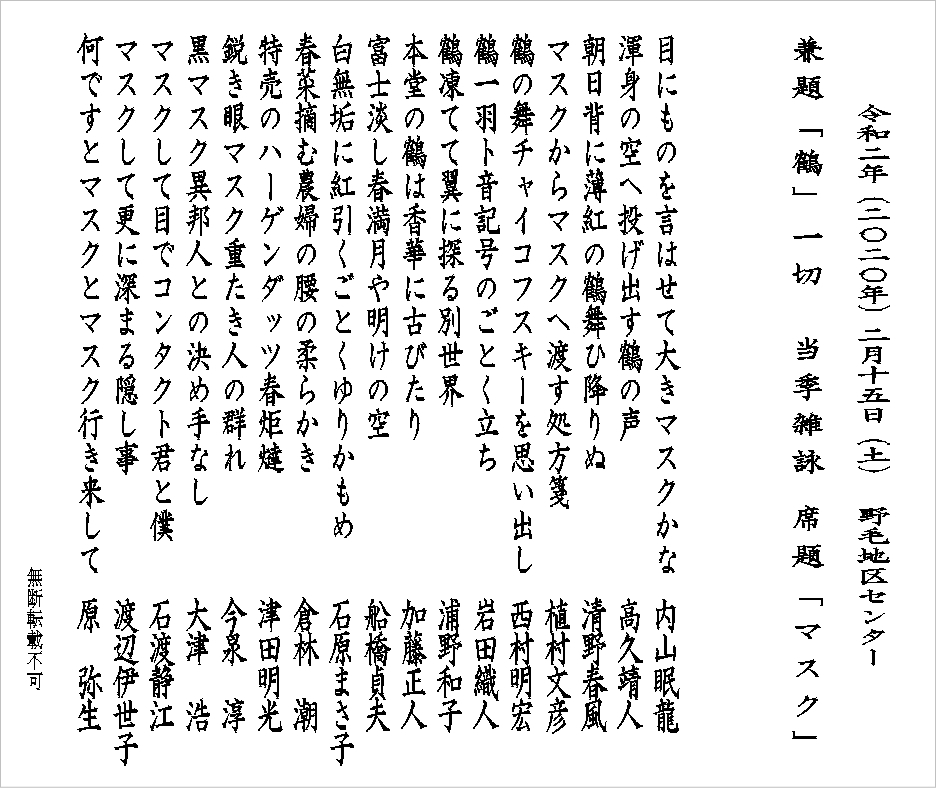 令和二年（二〇二〇年）二月十五日（土）　野毛地区センター
兼題「鶴」一切　当季雑詠　席題「マスク」
目にものを言はせて大きマスクかな　内山眠龍
渾身の空へ投げ出す鶴の声　高久靖人
朝日背に薄紅の鶴舞ひ降りぬ　清野春風
マスクからマスクへ渡す処方箋　植村文彦
鶴の舞チャイコフスキーを思い出し　西村明宏
鶴一羽ト音記号のごとく立ち　岩田織人
鶴凍てて翼に探る別世界　浦野和子
本堂の鶴は香華に古びたり　加藤正人
富士淡し春満月や明けの空　船橋貞夫
白無垢に紅引くごとくゆりかもめ　石原まさ子
春菜摘む農婦の腰の柔らかき　倉林　潮
特売のハーゲンダッツ春炬燵　津田明光
鋭き眼マスク重たき人の群れ　今泉　淳
黒マスク異邦人との決め手なし　大津　浩
マスクして目でコンタクト君と僕　石渡静江
マスクして更に深まる隠し事　渡辺伊世子
何ですとマスクとマスク行き来して　原　弥生
無断転載不可